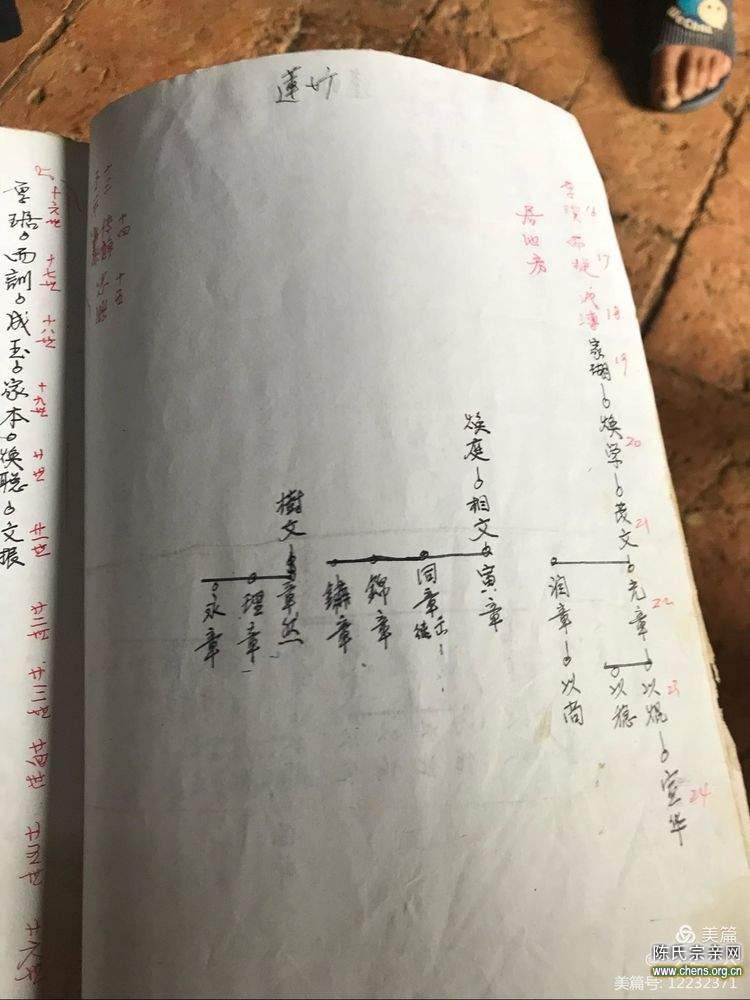 蓮竹
16
17
18
19
20
21
22
23
24
居池方
家瑚 焕学 茂文 允章 以焜 宣华
以穏
润章 以尚
焕庭 相文 寅章
同章
錦章
鏞章
樹文 章然
理章
永章
十四
十五
重琚 而訓 成玉 家本 焕聪 文振
十六世
十七世
十八世
十九世
廿世
廿一世
廿二世
廿三世
廿四世
廿五世
廿六世
美篇
陈氏宗亲网
www.chens.org.cn
美篇号: 12232371